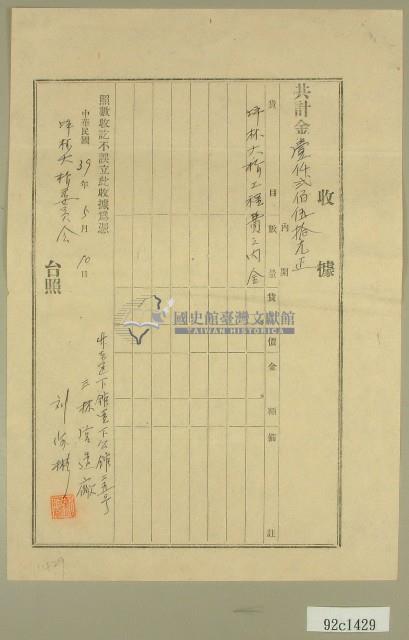 收據
共計金壹仟弍佰伍拾元正
內開
貨目 數量 貨價金額 備註
坪林大橋工程費之內金
照數收訖不誤立此收據為憑
中華民國39年5月10日
坪林大橋委員会 台照
三林宮造廠
國史館臺灣文獻館
TAIWAN HISTORICA
92c1429